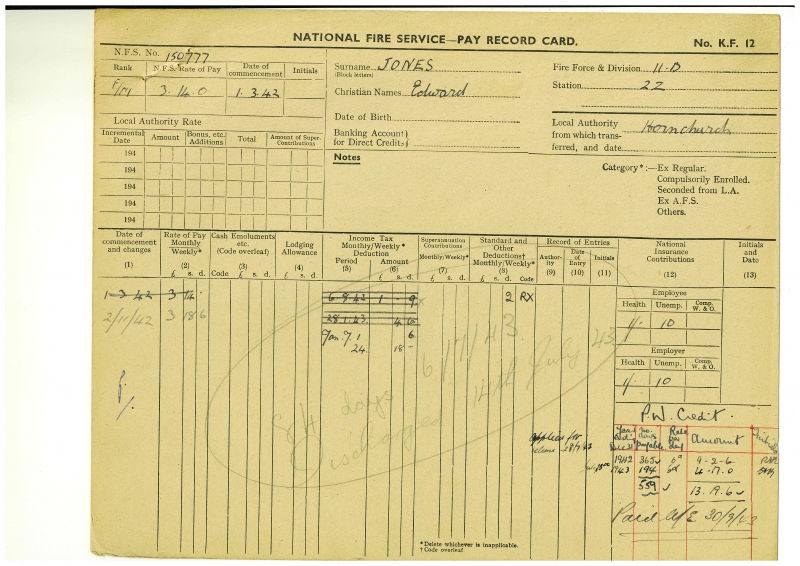 NATIONAL FIRE SERVICE—PAY RECORD CARD.
No. K.F. 12
N.F.S. No. 150777
Rank
N.F.S. Rate of Pay
Date of commencement
Initials
F/M
3. 14. 0
1. 3. 42
Local Authority Rate
Incremental Date
Amount
Bonus, etc. Additions
Total
Amount of Super. Contributions
194
194
194
194
194
Surname JONES
(Block letters)
Christian Names Edward
Date of Birth
Banking Account
for Direct Credits
Notes
Fire Force & Division 11.D
Station 22
Local Authority Hornchurch
from which trans-
ferred, and date
Category*:—Ex Regular.
Compulsorily Enrolled.
Seconded from L.A.
Ex A.F.S.
Others.
Date of commencement and changes (1)
Rate of Pay Monthly Weekly* (2) £ s. d.
Cash Emoluments etc. (Code overleaf) (3) Code £ s. d.
Lodging Allowance (4) £ s. d.
Income Tax Monthly/Weekly* Deduction
Period (5) Amount (6) £ s. d.
Superannuation Contributions Monthly/Weekly* (7) £ s. d.
Standard and Other Deductions† Monthly/Weekly* (8) £ s. d. Code
Record of Entries
Authority (9)
Date of Entry (10)
Initials (11)
National Insurance Contributions (12)
Initials and Date (13)
1-3-42 3 14 -
6-8-42 1 - 9
2 RX
2/11/42 3 18 6
28.1.43. 4 6
6.
24. 18 -
84 days 6/7/43
Discharged 14th July 43
Employee
Health
Unemp.
Comp. W. & O.
1/- 10
Employer
Health
Unemp.
Comp. W. & O.
1/- 10
P.W. Credit.
No. days payable
Rate per day
Amount
Initials
1942 365 6d 9-2-6
1943 194 6d 4.17.0
559 13.19.6
Applied for
release
Paid a/c 30/9/43
*Delete whichever is inapplicable.
†Code overleaf